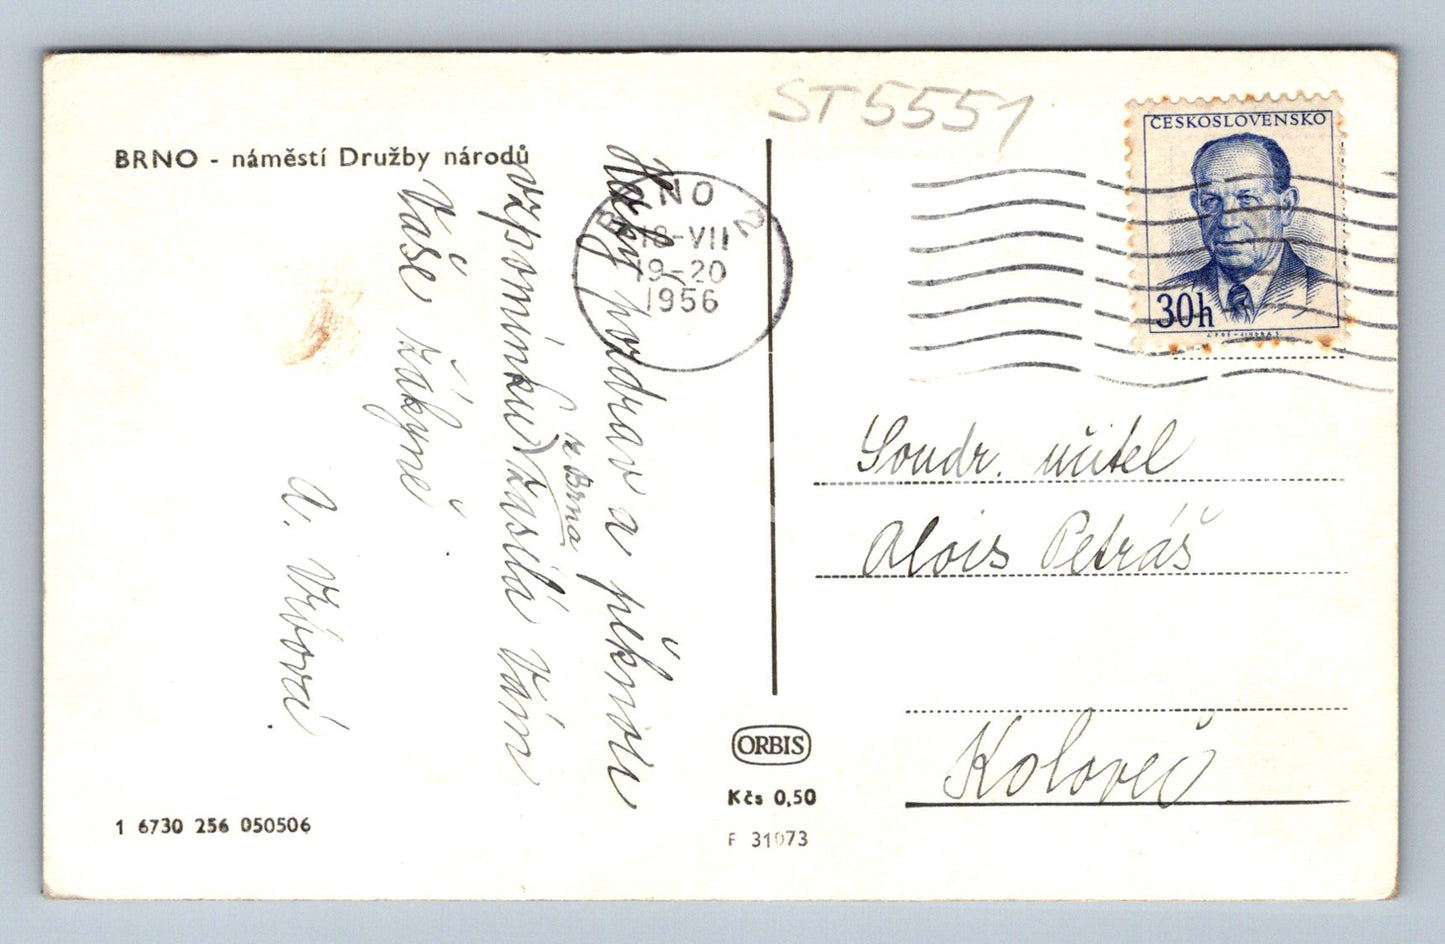 ST5551
BRNO - náměstí Družby národů
BRNO 2
18-VII
19-20
1956
ČESKOSLOVENSKO
30h
pozdrav a pěknou
vzpomínku zasílá Vám
z Brna
Vaše žákyně
A. Vrbová
Soudr. učitel
Alois Petráš
Koloveč
ORBIS
Kčs 0,50
F 31073
1 6730 256 050506